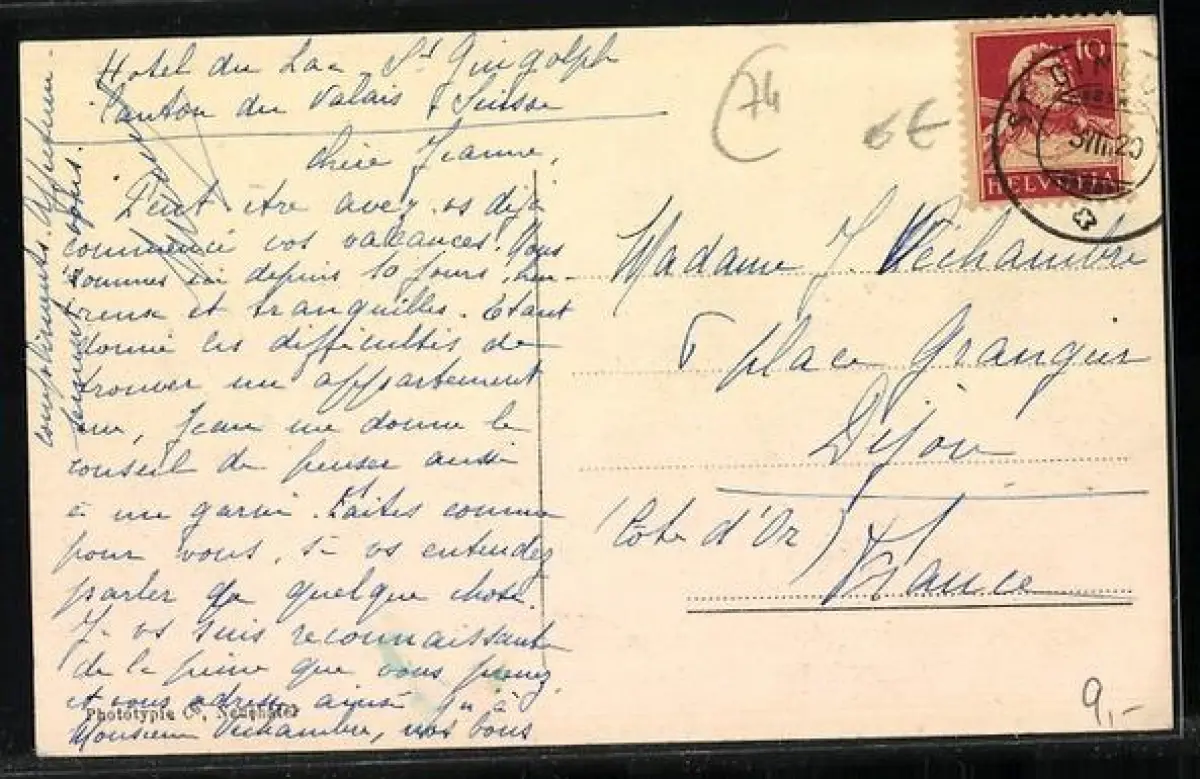 Hotel du Lac St Gingolph
Canton du Valais Suisse
Chère Jeanne,
Peut-être avez-vs déjà
commencé vos vacances. Nous
sommes ici depuis 10 jours, heu-
reuse et tranquilles. Etant
donné les difficultés de
trouver un appartement
nu, Jean me donne le
conseil de penser aussi
à un garni. Faites comme
pour vous, si vs entendez
parler de quelque chose.
Je vs suis reconnaissante
de la peine que vous prenez
et vous adresse ainsi qu'à
Monsieur Péchambre, nos bons
compliments. Affectueu-
sement
Phototypie Co, Neuchâtel
10
HELVETIA
ST GINGOLPH
VIII 20
74
6€
Madame J. Péchambre
6 place Grangier
Dijon
(Côte d'Or) France
9,-